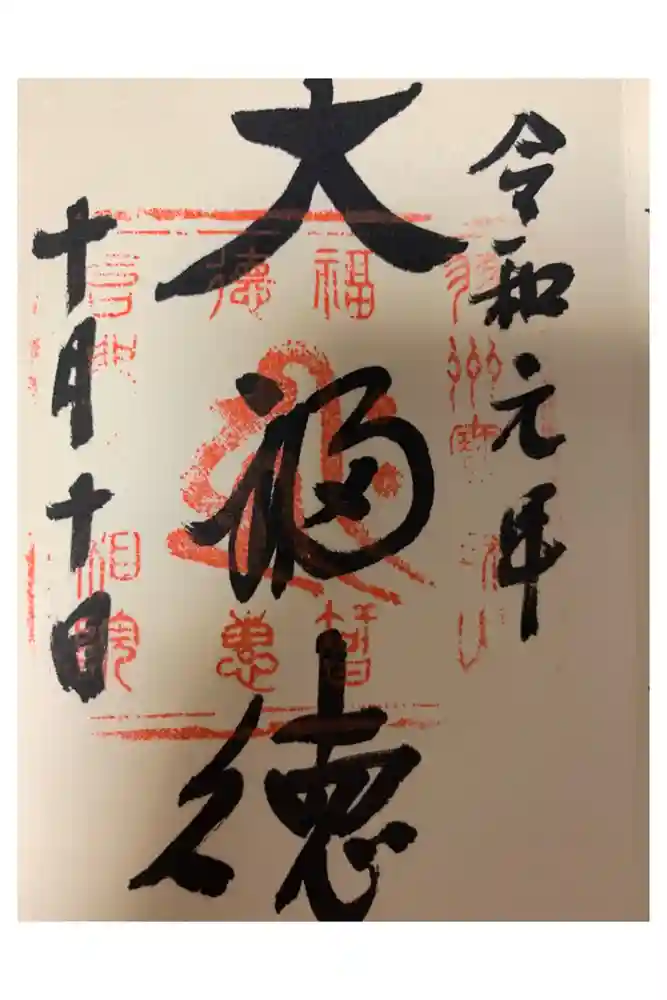 令和元年
大福徳
十月十日
福智
徳恵